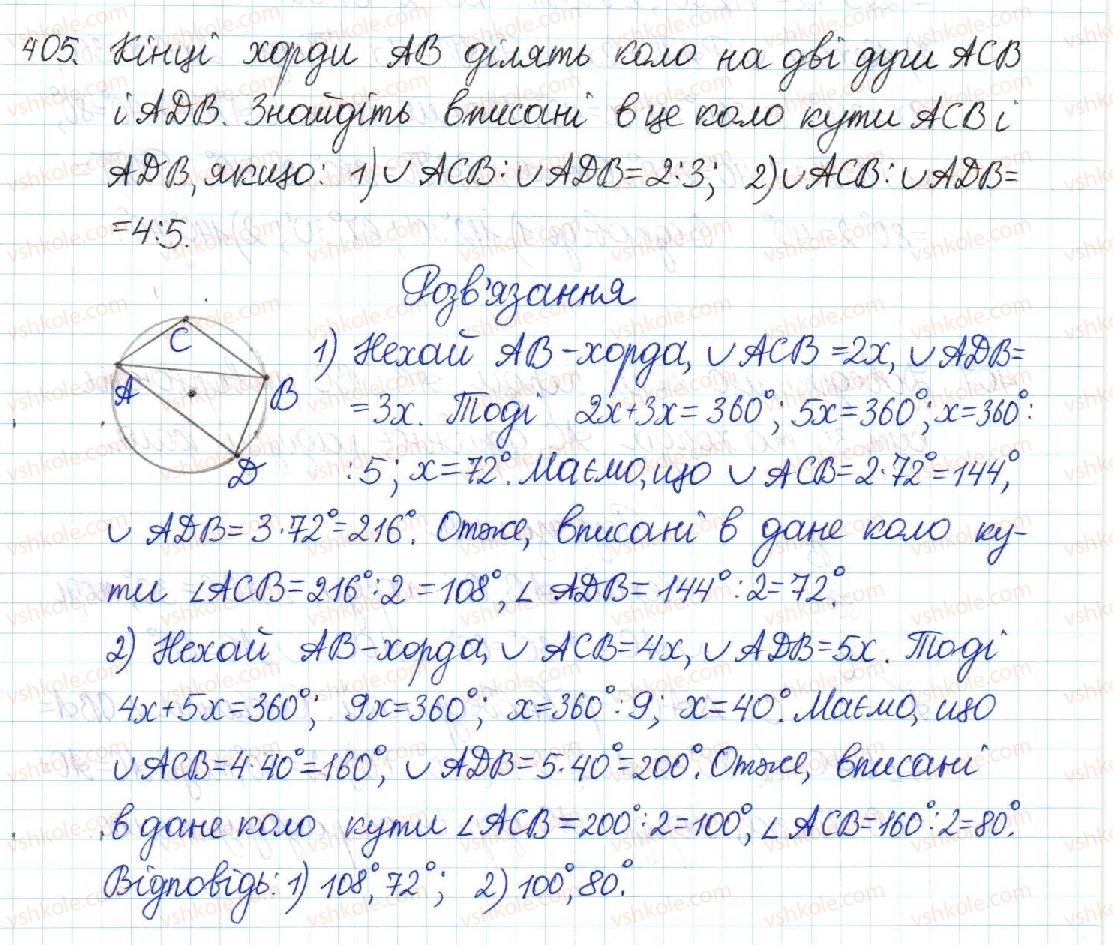 405. Кінці хорди AB ділять коло на дві дуги ACB
і ADB. Знайдіть вписані в це коло кути ACB і
ADB, якщо: 1) ∪ ACB : ∪ ADB = 2:3; 2) ∪ ACB : ∪ ADB =
= 4:5.
Розв'язання
C
A
B
D
1) Нехай AB - хорда, ∪ ACB = 2x, ∪ ADB =
= 3x. Тоді 2x + 3x = 360°; 5x = 360°; x = 360° :
: 5; x = 72°. Маємо, що ∪ ACB = 2·72° = 144°,
∪ ADB = 3·72° = 216°. Отже, вписані в дане коло ку-
ти ∠ACB = 216° : 2 = 108°, ∠ADB = 144° : 2 = 72°.
2) Нехай AB - хорда, ∪ ACB = 4x, ∪ ADB = 5x. Тоді
4x + 5x = 360°; 9x = 360°; x = 360° : 9; x = 40°. Маємо, що
∪ ACB = 4·40° = 160°, ∪ ADB = 5·40° = 200°. Отже, вписані
в дане коло кути ∠ACB = 200° : 2 = 100°, ∠ACB = 160° : 2 = 80°.
Відповідь: 1) 108°, 72°; 2) 100°, 80°.
vshkole.com